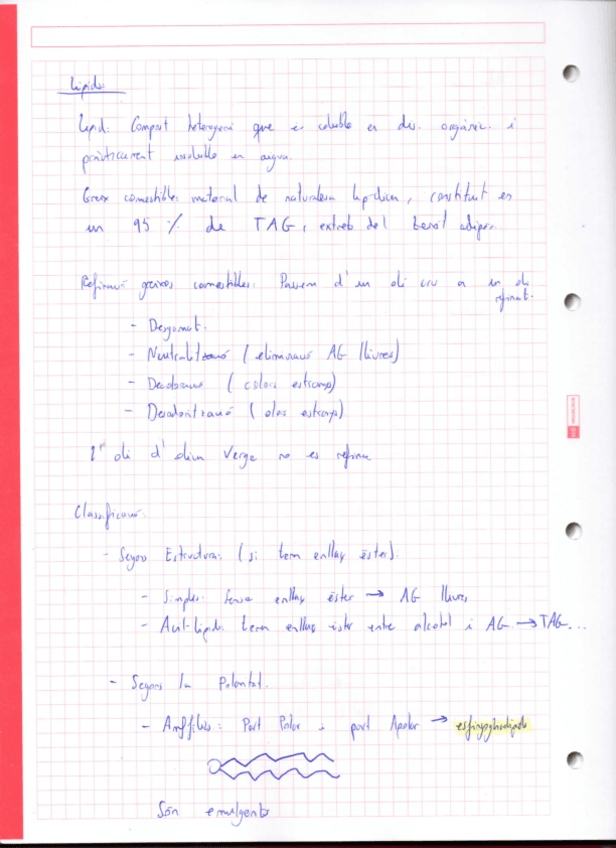 Lípids
Lípid: Compost heterogeni que és soluble en dis. orgànic. i
pràcticament insoluble en aigua.
Greix comestible: material de naturalesa lipídica, constituït en
un 95 % de TAG, extret del teixit adipós
Refinació greixos comestibles: Passem d'un oli cru a un oli
refinat.
- Desgomat.
- Neutralització (eliminació AG lliures)
- Decoloració (colors estranys)
- Desodorització (olors estranys)
l' oli d'oliva Verge no es refina
Classificació:
- Segons Estructura: (si tenen enllaç èster).
- Simples: sense enllaç èster → AG lliures
- Acil-lípids tenen enllaç èster entre alcohol i AG → TAG...
- Segons la Polaritat.
- Amfífiles: Part Polar i part Apolar →
Són emulgents